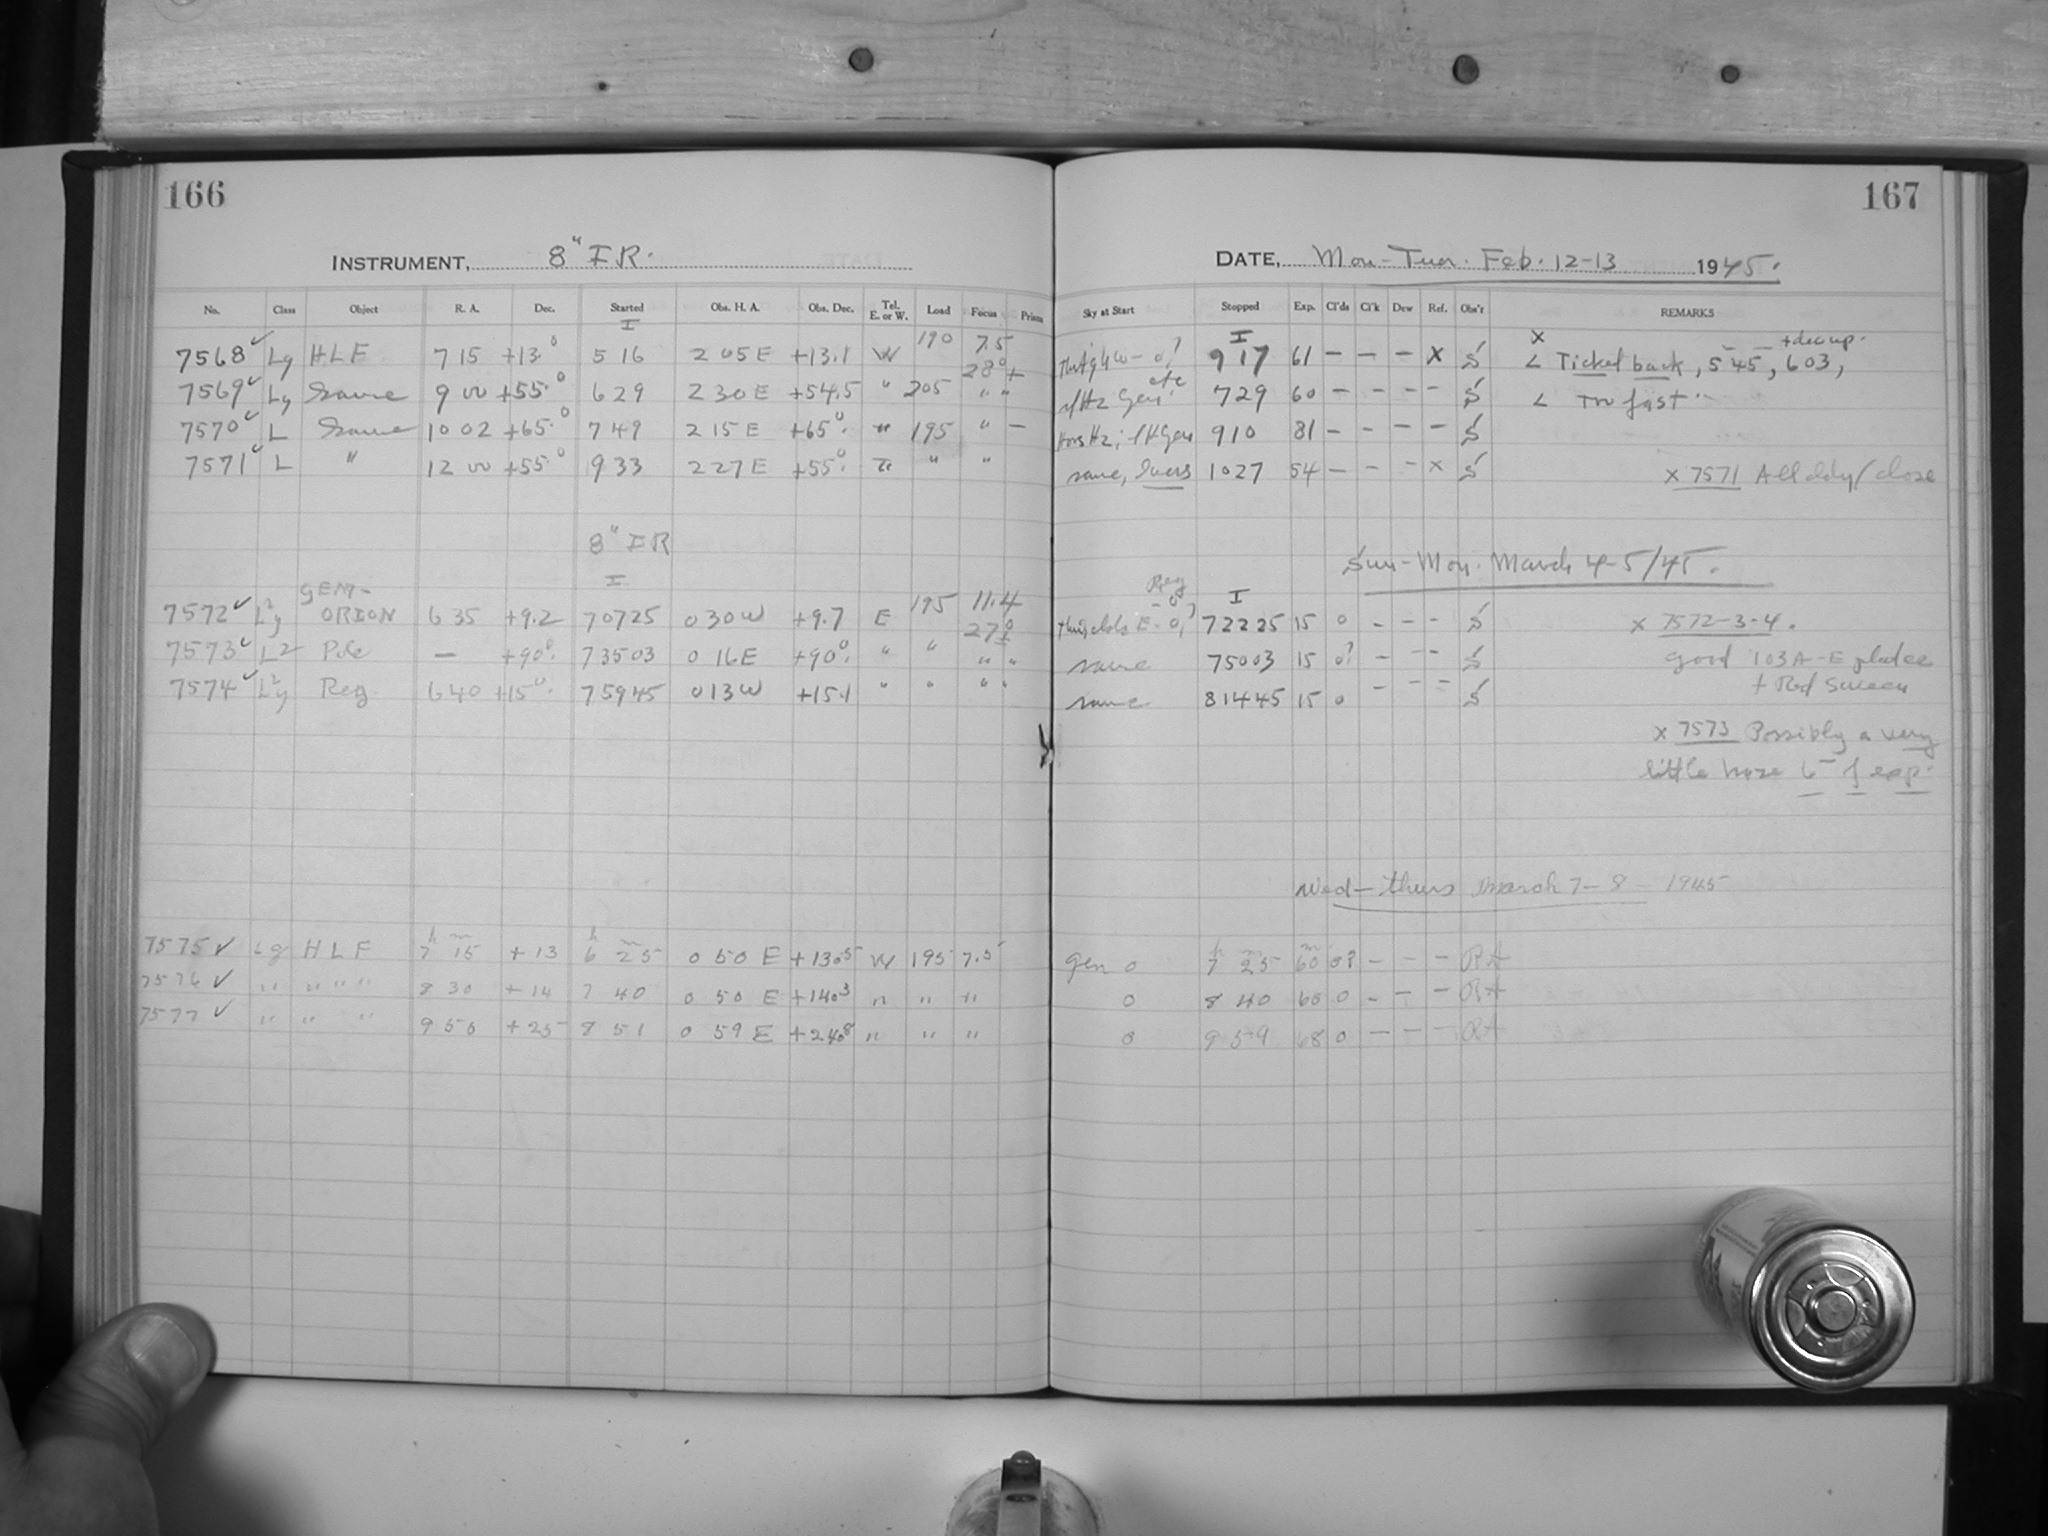 166
167
INSTRUMENT, 8" I R.
DATE, Mon-Tues. Feb. 12-13 1945.
No. Class Object R. A. Dec. Started Obs. H. A. Obs. Dec. Tel. E. or W. Load Focus Prism Sky at Start Stopped Exp. Cl'ds Cl'k Dew Ref. Obs'r REMARKS
I 190 7.5 I x
7568 ✓ Lg HLF 7 15 +13° 5 16 2 05 E +13.1 W 28° + 9 17 61 - - - x S < Ticket back, 5 45, 603,
7569 ✓ Lg Same 9 00 +55.° 6 29 2 30 E +54.5 " 205 " " etc 7 29 60 - - - - S < Too fast.
7570 ✓ L Same 10 02 +65.° 7 49 2 15 E +65°. " 195 " - 9 10 81 - - - - S
7571 ✓ L " 12 00 +55.° 9 33 2 27 E +55°. " " same, 10 27 54 - - - x S x 7571 All ddy/close
8" I R
Sun-Mon. March 4-5/45.
I I
7572 ✓ L²g GEM-ORION 6 35 +9.2 7 07 25 0 30 W +9.7 E 195 11.4 27° 7 22 25 15 0 - - - S x 7572-3-4.
7573 ✓ L2 Pole - +90°. 7 35 03 0 16 E +90°. " " " " same 7 50 03 15 0? - - - S Good 103A-E plates
7574 ✓ L²g Reg. 6 40 +15°. 7 59 45 0 13 W +15.1 " " " " same 8 14 45 15 0 - - - S + Red Screen
x 7573 Possibly a very
little haze 6 of exp.
Wed-Thurs March 7-8-1945
7575 ✓ Lg HLF 7h 15m +13 6h 25m 0 50 E +13.5 W 195 7.5 Gen 0 7h 25m 60m 0? - - - RA
7576 ✓ " " " " 8 30 +14 7 40 0 50 E +14.3 " " " 0 8 40 60 0 - - - RA
7577 ✓ " " " 9 50 +25 8 51 0 59 E +24.8 " " " 0 9 59 68 0 - - - RA